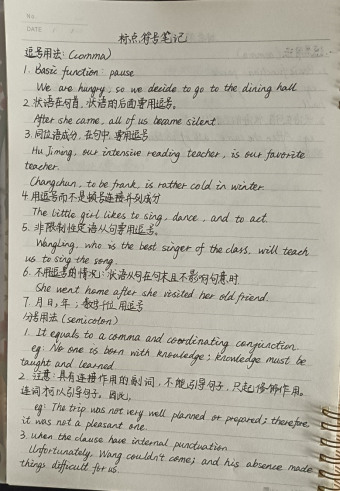 No.
DATE
标点符号笔记
逗号用法:(comma)
1. Basic function: pause
We are hungry, so we decide to go to the dining hall
2. 状语在句首,状语的后面要用逗号。
After she came, all of us became silent.
3. 同位语成分,在句中,要用逗号
Hu Jiming, our intensive reading teacher, is our favorite
teacher.
Changchun, to be frank, is rather cold in winter.
4. 用逗号而不是顿号连接并列成分
The little girl likes to sing, dance, and to act.
5. 非限制性定语从句要用逗号。
Wangling, who is the best singer of the class, will teach
us to sing the song.
6. 不用逗号的情况:状语从句在句末且不影响句意时
She went home after she visited her old friend.
7. 月日,年;数位用逗号
分号用法 (semicolon)
1. It equals to a comma and coordinating conjunction.
eg: No one is born with knowledge; knowledge must be
taught and learned.
2. 注意:具有连接作用的副词,不能引导句子,只起修饰作用。
连词才可以引导句子。因此,
eg: The trip was not very well planned or prepared; therefore,
it was not a pleasant one.
3. when the clause have internal punctuation
Unfortunately, Wang couldn't come; and his absence made
things difficult for us.